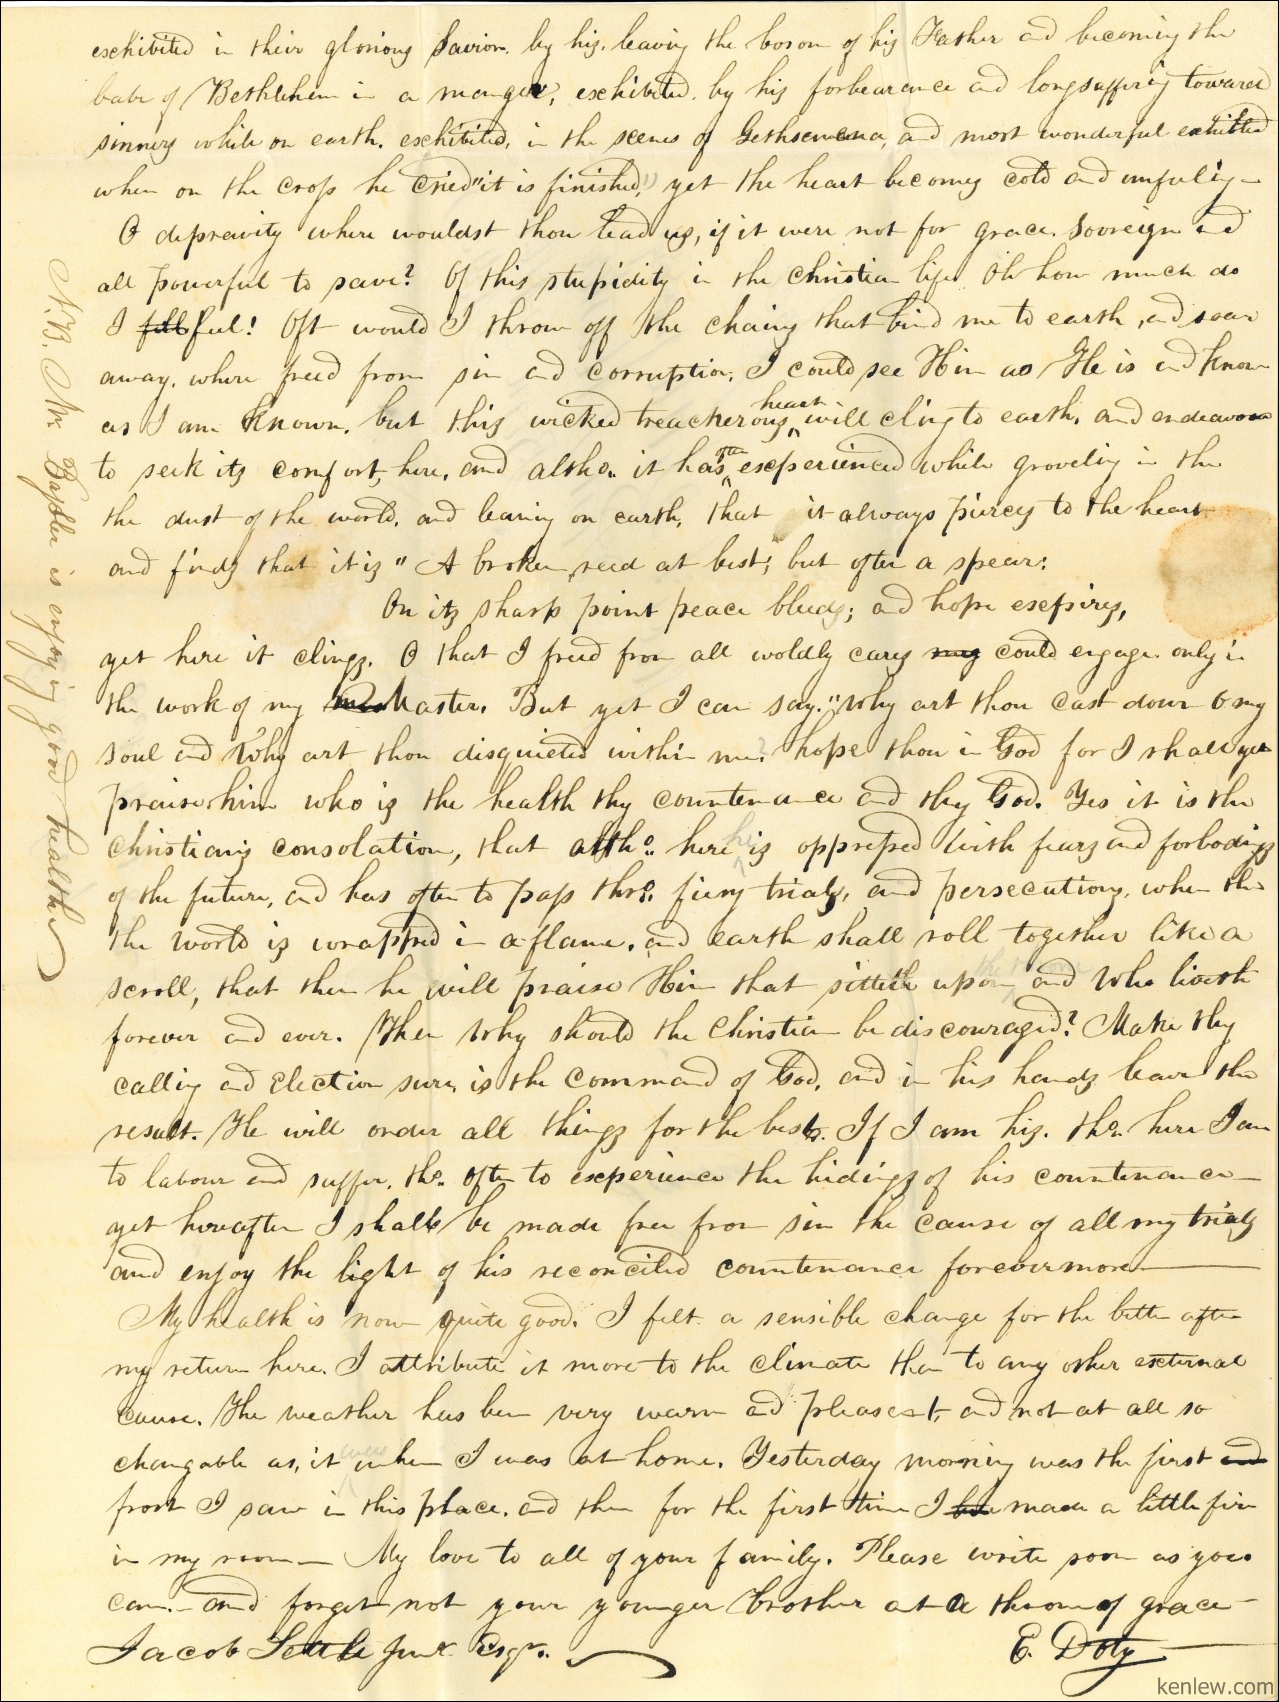 exhibited in their glorious Savior. by his leaving the bosom of his Father and becoming the
babe of Bethlehem in a manger, exhibited, by his forbearance and longsuffering toward
sinners while on earth. exhibited, in the scenes of Gethsemena, and most wonderful exhibited
when on the cross he cried "it is finished," yet the heart becomes cold and unfeeling—
O depravity where wouldst thou lead us, if it were not for grace. Sovreign and
all powerful to save? Of this stupidity in the christian life Oh how much do
I feel! Oft would I throw off the chains that bind me to earth, and soar
away, where freed from sin and corruption, I could see Him as He is and know
as I am known. but this wicked treacherous heart will cling to earth, and endeavour
to seek its comfort, here, and altho. it has oft experienced while groveling in the
the dust of the world, and leaning on earth, that it always pierces to the heart
and finds that it is "A broken reed at best; but often a spear:
On its sharp point peace bleeds; and hope expires,
yet here it clings. O that I freed from all woldly cares could engage only in
the work of my Master. But yet I can say. "Why art thou cast down O my
soul and Why art thou disquieted within me? hope thou in God for I shall yet
praise him who is the health thy countenance and thy God. Yes it is the
christians consolation, that altho. here he is oppressed with fears and forbodings
of the future, and has often to pass thro. fiery trials, and persecutions, when the
the world is wrapped in a flame, and earth shall roll together like a
scroll, that then he will praise Him that sitteth upon the throne and Who liveth
forever and ever. Then Why should the Christian be discouraged? Make thy
calling and Election sure, is the command of God, and in his hands leave the
result. He will order all things for the best. If I am his. tho. here I am
to labour and suffer, tho. often to experience the hidings of his countenance—
yet hereafter I shall be made free from sin the cause of all my trials
and enjoy the light of his reconciled countenance forevermore—
My health is now quite good. I felt a sensible change for the better after
my return here. I attribute it more to the climate than to any other external
cause. The weather has been very warm and pleasent, and not at all so
changable as, it was when I was at home. Yesterday morning was the first
frost I saw in this place. and then for the first time I made a little fire
in my room— My love to all of your family. Please write soon as you
can.— and forget not your younger brother at a throne of grace—
Jacob Settle Junr. Esqr.
E. Doty
N.B. Mr. is enjoying good health
kenlew.com